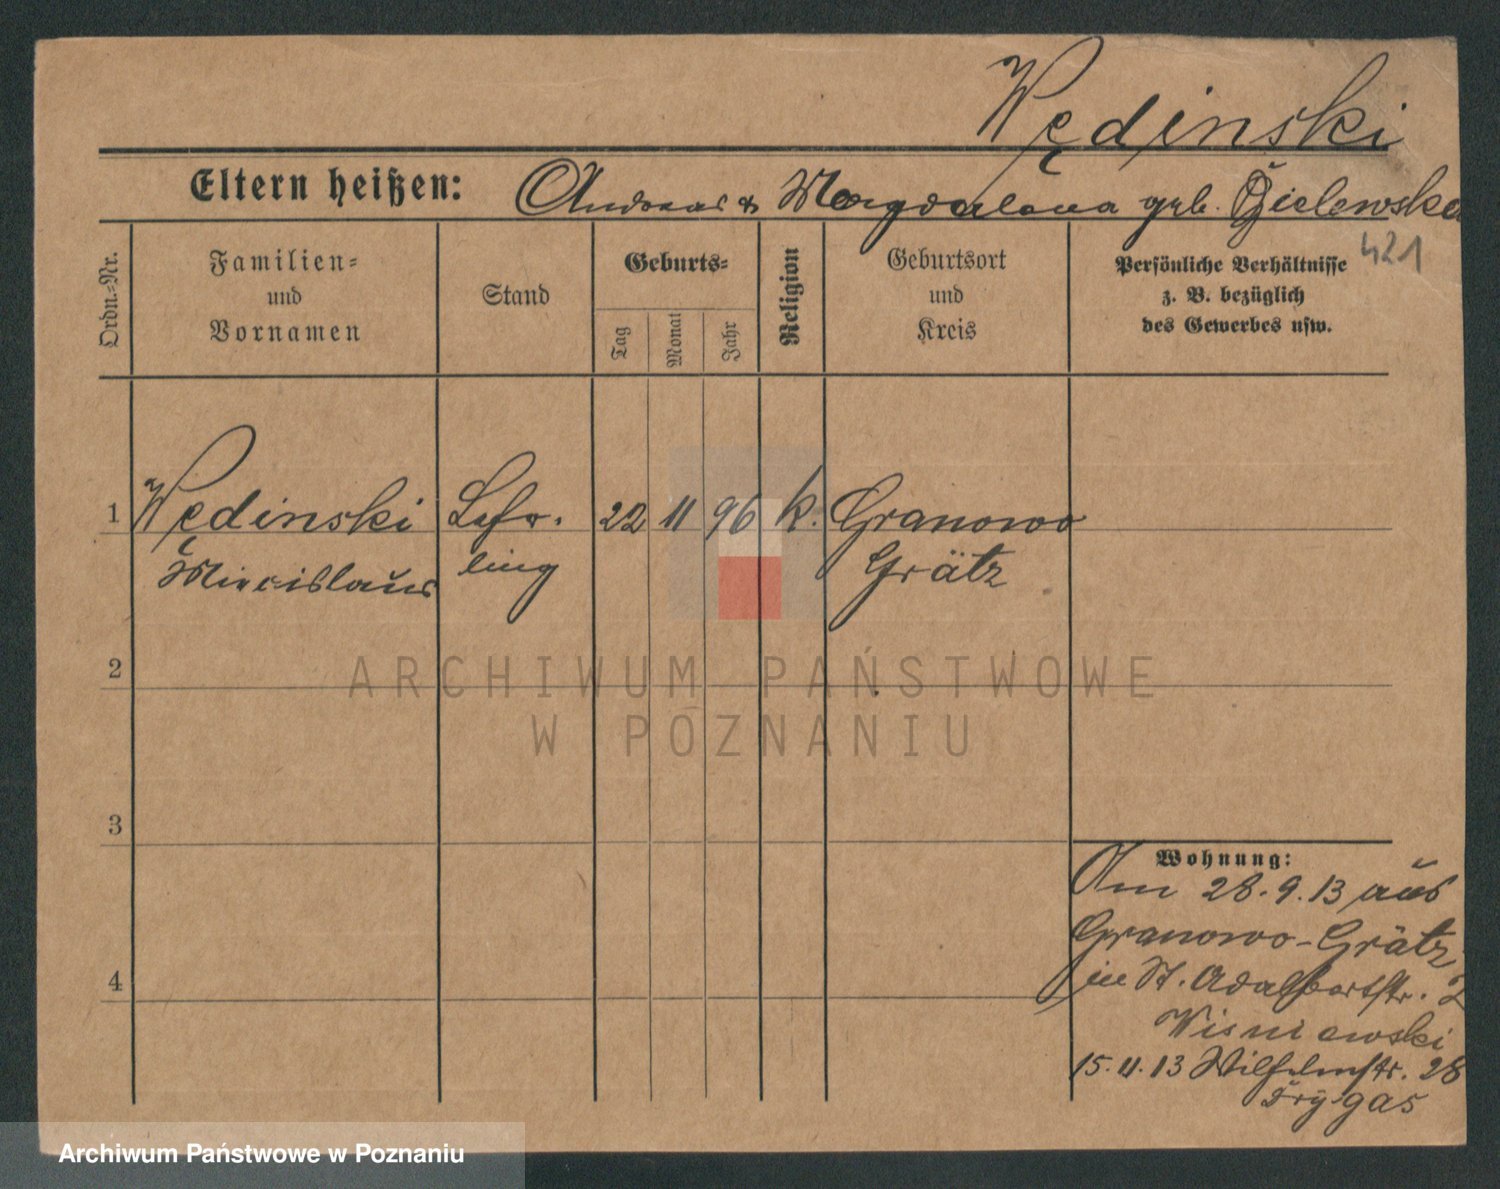 Wędinski
Eltern heißen: Andreas & Magdalena geb. Bielewska
421
Ordn.-Nr.
Familien-
und
Vornamen
Stand
Geburts-
Tag
Monat
Jahr
Religion
Geburtsort
und
Kreis
Persönliche Verhältnisse
z. B. bezüglich
des Gewerbes usw.
1 Wędinski Lehr- 22 11 96 k. Granowo
Miecislaus ling Grätz
2
ARCHIWUM PAŃSTWOWE
W POZNANIU
3
Wohnung:
Am 28.9.13 aus
Granowo-Grätz
in St. Adalbertstr. 2
Wisniewski
15.11.13 Wilhelmstr. 28
4
Archiwum Państwowe w Poznaniu